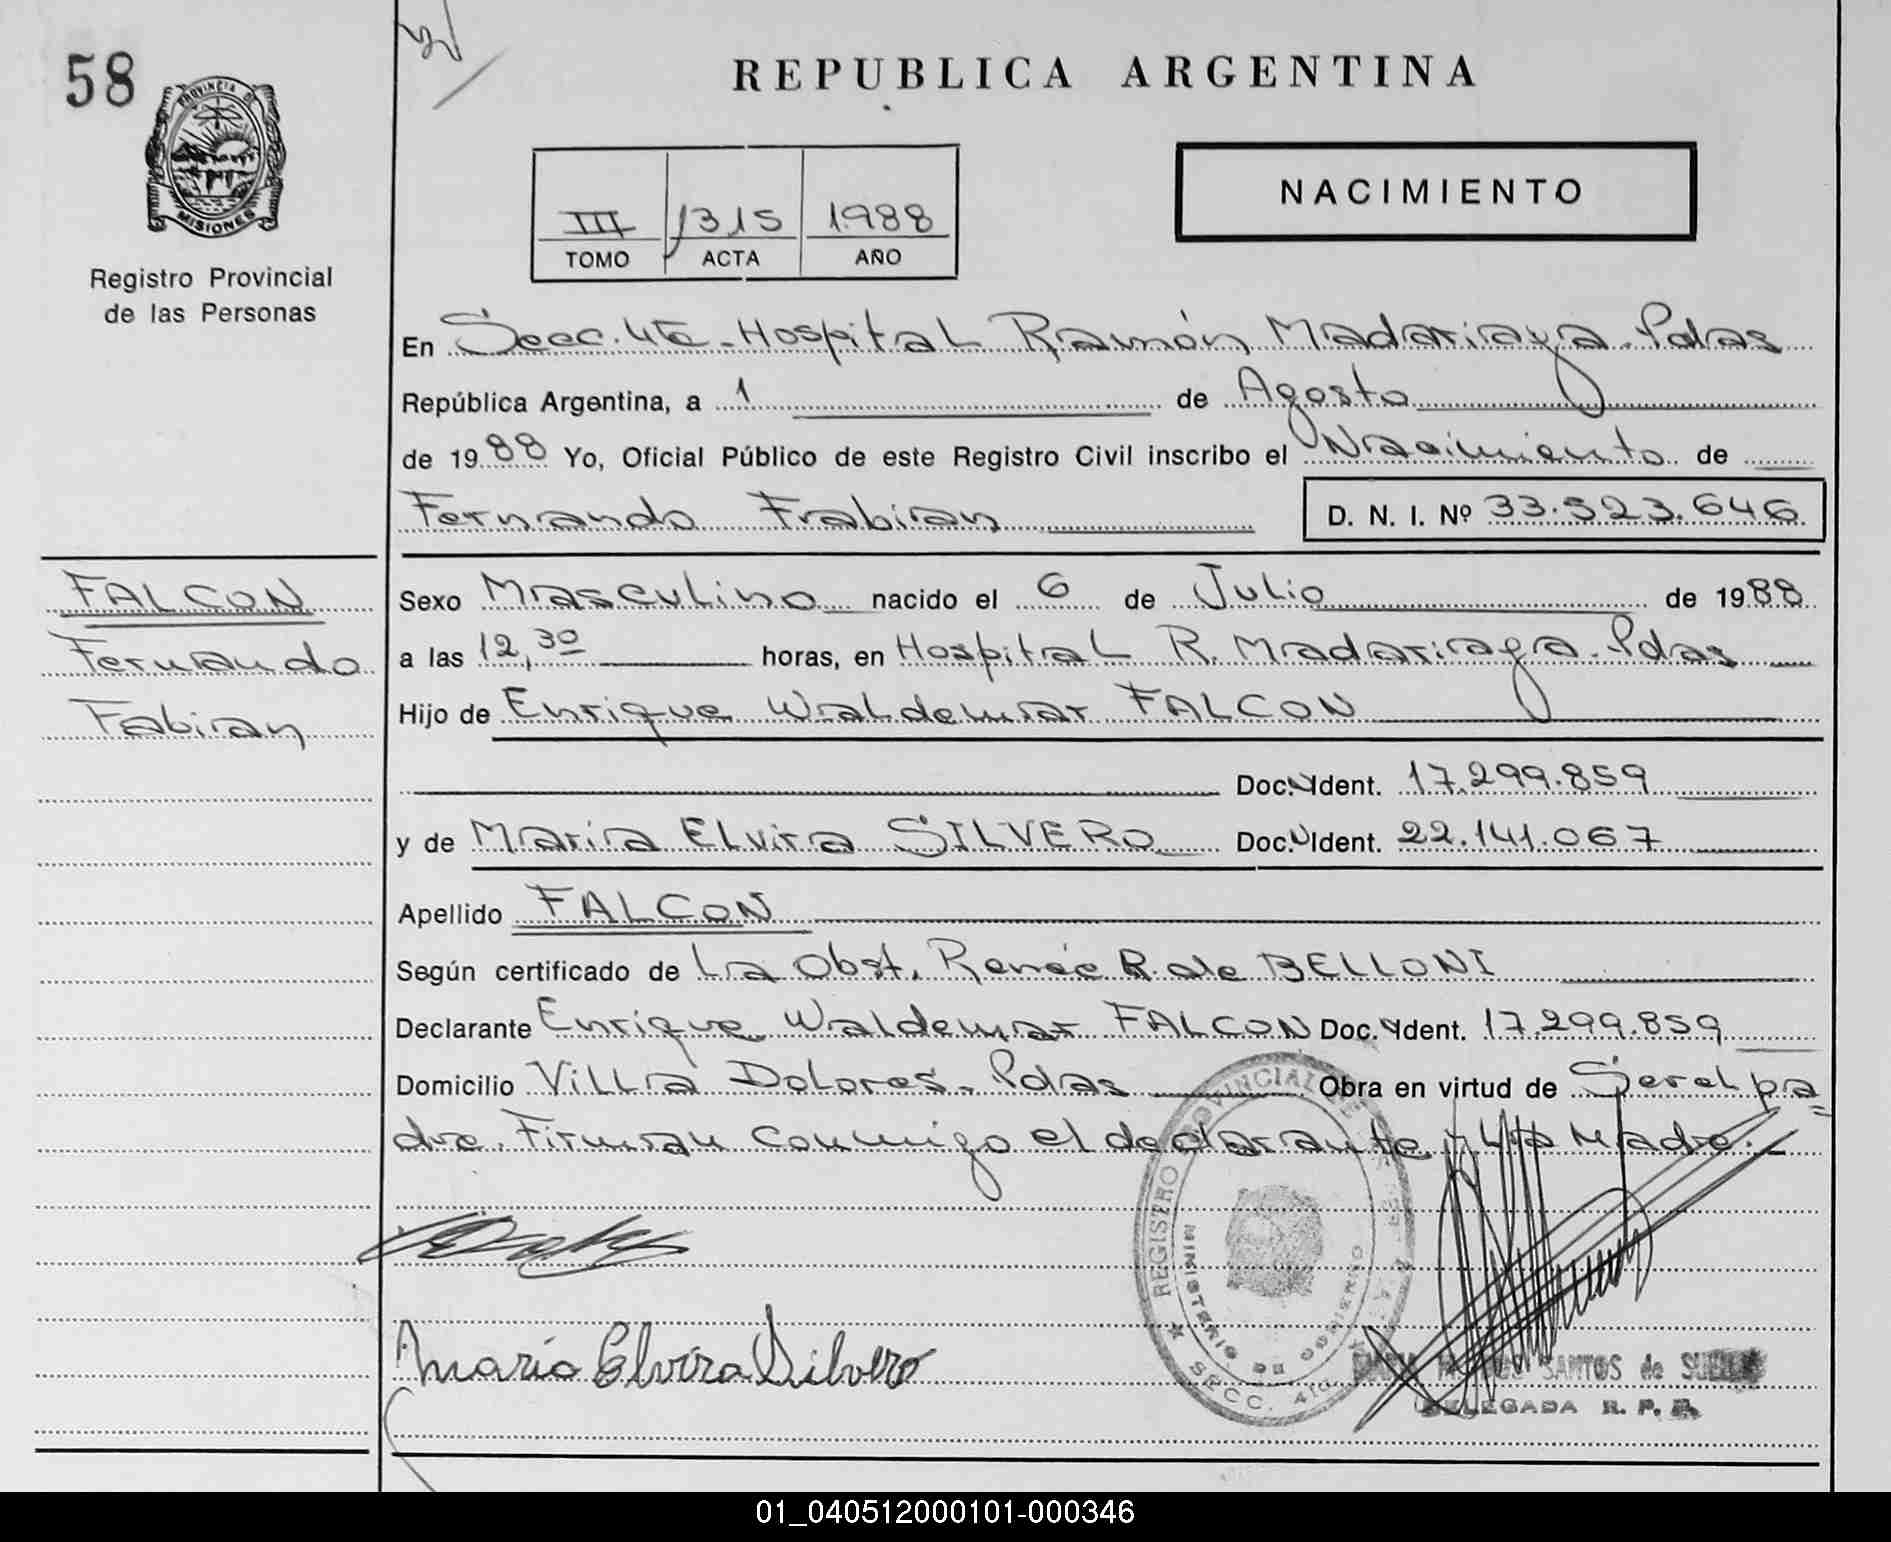 58
REPUBLICA ARGENTINA
PROVINCIA DE
MISIONES
Registro Provincial
de las Personas
III 1315 1988
TOMO ACTA AÑO
NACIMIENTO
En Secc. 4ta - Hospital Ramón Madariaga - Pdas
República Argentina, a 1 de Agosto
de 1988 Yo, Oficial Público de este Registro Civil inscribo el Nacimiento de
Fernando Fabian D. N. I. Nº 33.523.646
FALCON
Fernando
Fabian
Sexo Masculino nacido el 6 de Julio de 1988
a las 12,30 horas, en Hospital R. Madariaga - Pdas
Hijo de Enrique Waldemar FALCON
Doc. Ident. 17.299.859
y de Maria Elvira SILVERO Doc. Ident. 22.141.067
Apellido FALCON
Según certificado de La Obst. Renée R. de BELLONI
Declarante Enrique Waldemar FALCON Doc. Ident. 17.299.859
Domicilio Villa Dolores - Pdas Obra en virtud de Ser el pa=
dre. Firman conmigo el declarante y La Madre.
Maria Elvira Silvero
REGISTRO PROVINCIAL DE
MINISTERIO DE GOBIERNO
SECC. 4ta
SANTOS de
DELEGADA R. P. P.
01_040512000101-000346